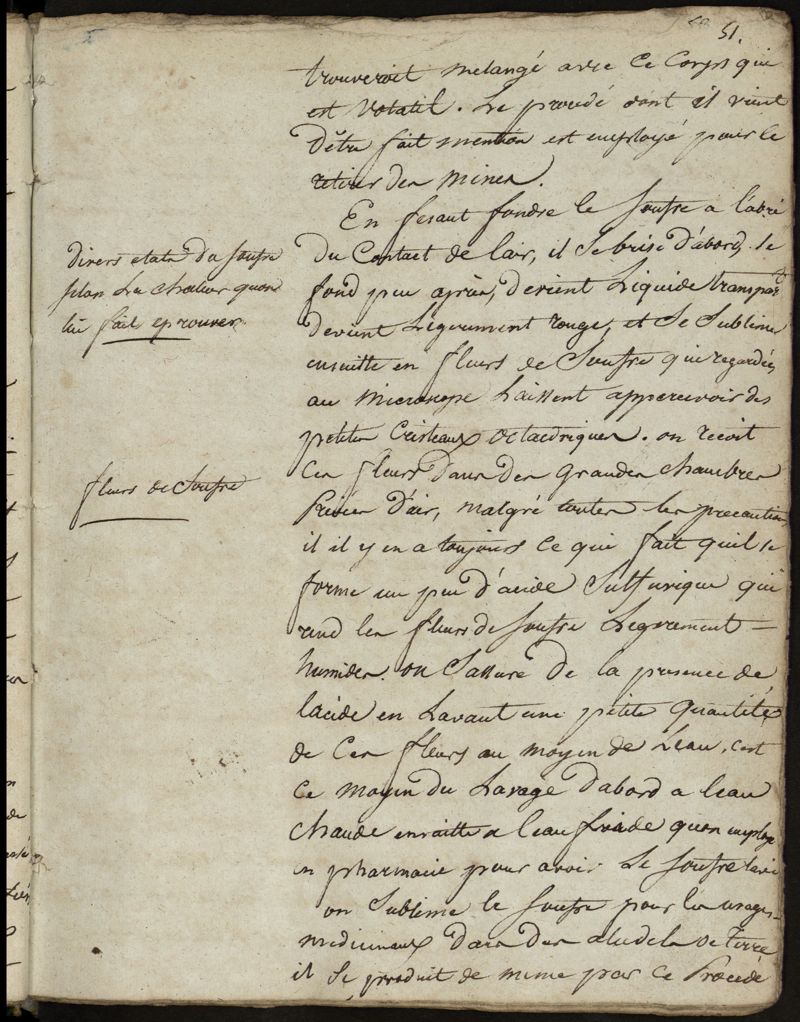 51.
trouveroit melangé avec ce Corps qui
est volatil. Le procedé dont il vient
D'être fait mention est employé pour le
retirer des mines.
En fesant fondre le Soufre a l'abri
Du Contact de l'air, il se brise D'abord, se
fond peu après, devient Liquide transpart
devient Legerement rouge, et Se Sublime
ensuitte en fleurs de Soufre qui regardées
au microscope Laissent appercevoir des
petites Cristeaux octaedriques. on recoit
Ces fleurs dans des grandes Chambres
Privées D'air, malgré toutes les precautions
il il y en a toujours ce qui fait quil se
forme un peu d'acide Sulfurique qui
rend les fleurs de Soufre Legerement
humides. on S'assure De la presence de
l'acide en Lavant une petite quantité
de Ces fleurs au moyen de L'eau, c'est
Ce moyen du Lavage D'abord a l'eau
Chaude ensuitte a l'eau froide quon employe
en pharmacie pour avoir Le Soufre lavé
on Sublime le Soufre pour les usages
medicinaux Dans Des aludels de terre
il Se produit de meme par ce Procedé
Divers etats Du Soufre
selon La Chaleur quon
lui fait eprouver.
fleurs de Soufre